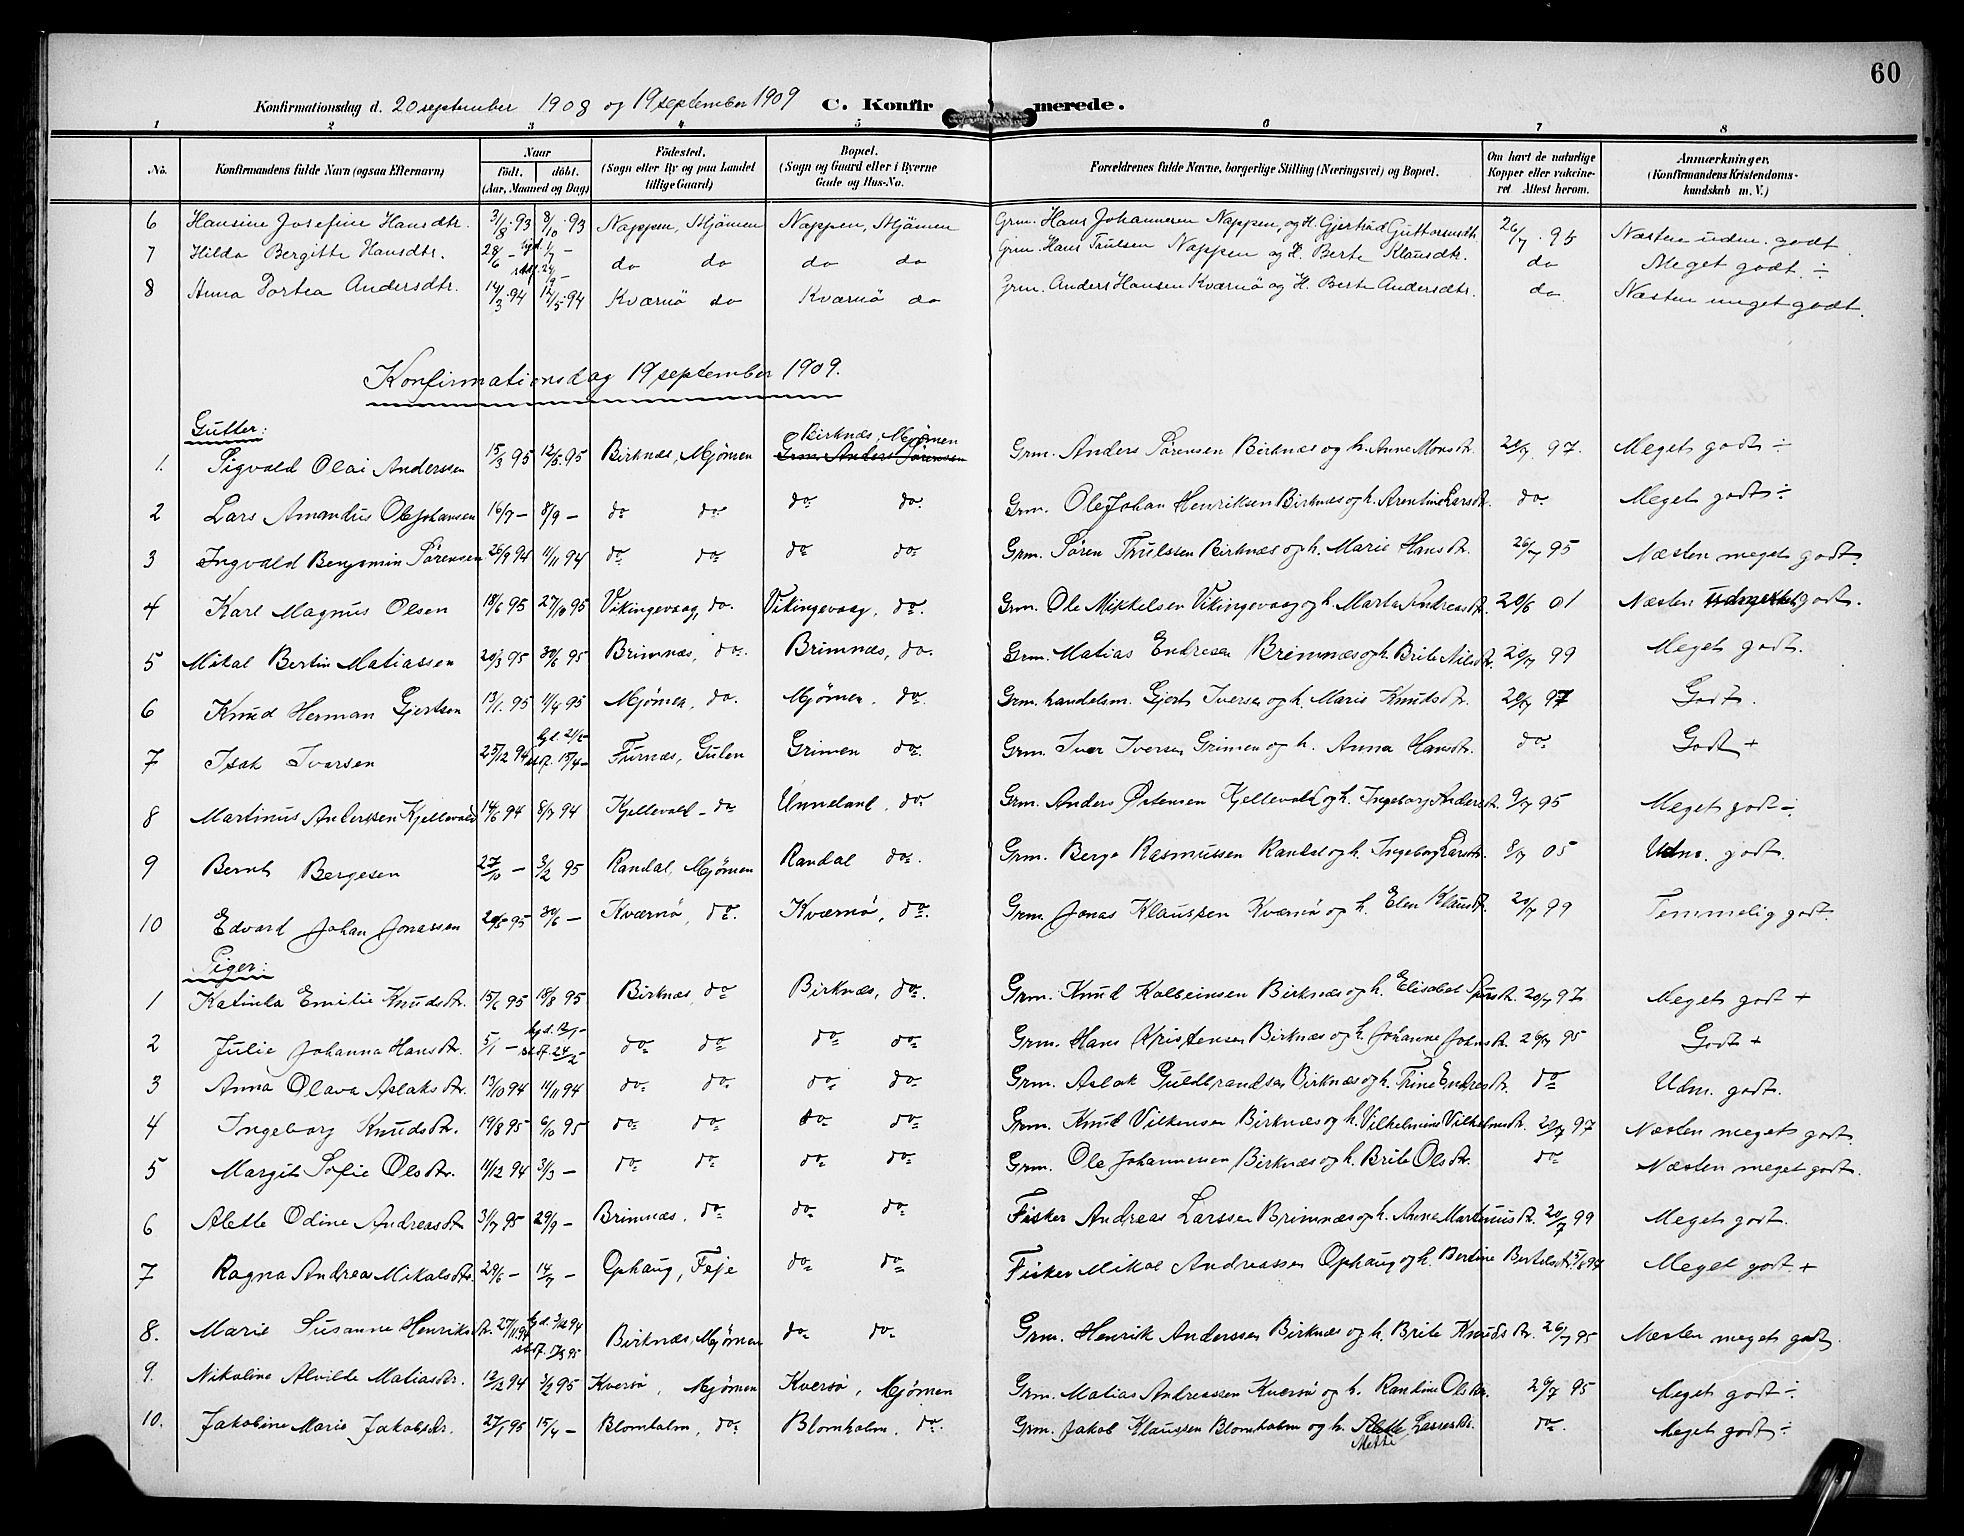 60
Konfirmationsdag d. 20 september 1908 og 19 september 1909 C. Konfirmerede.
1 2 3 4 5 6 7 8
No. Konfirmandens fulde Navn (ogsaa Efternavn) Naar født. døbt. (Aar, Maaned og Dag) Fødested. (Sogn eller By og paa Landet tillige Gaard) Bopæl. (Sogn og Gaard eller i Byerne Gade og Hus-No. Forældrenes fulde Navne, borgerlige Stilling (Næringsvei) og Bopæl. Om havt de naturlige Kopper eller vaccineret Attest herom. Anmærkninger. (Konfirmandens Kristendomskundskab m. V.)
6 Hansine Josefine Hansdtr. 31/8 93 8/10 93 Nappen, Mjömen Nappen, Mjömen Grm. Hans Johannesen Nappen, og H. Gjertrud Guttormsdtr. 26/7 95 Næsten udm. godt
7 Hilda Bergitte Hansdtr. 28/6 - hjd. 1/7 - stdf. 24/9 - do do do do Grm. Hans Trulsen Nappen og H. Berte Klausdtr. do Meget godt ÷
8 Anna Dortea Andersdtr. 14/3 94 12/5 94 Kværnö do Kværnö do Grm. Anders Hansen Kværnö og H. Berte Andersdtr. do Næsten meget godt.
Konfirmationsdag 19 september 1909.
Gutter:
1. Sigvald Olai Anderssen 15/3 95 12/5 95 Birknæs, Mjømen Birknæs, Mjømen Grm. Anders Sørensen Grm. Anders Sørensen Birknæs og h. Anne Monsdr. 20/7 97. Meget godt ÷
2 Lars Amandus OleJohansen 16/7 - 8/9 - do do do do Grm. OleJohan Henriksen Birknæs og h. Arentine Larsdr. do Meget godt ÷
3 Ingvald Benjamin Sørensen 26/9 94 11/11 94 do do do do Grm. Søren Trulssen Birknæs og h. Marie Hansdr. 26/7 95 Næsten meget godt.
4 Karl Magnus Olsen 18/6 95 27/10 95 Vikingevaag, do. Vikingevaag, do. Grm. Ole Mikkelsen Vikingevaag og h. Marta Andreasdr. 20/6 01 Næsten godt.
5 Mikal Bertin Matiassen 20/3 95 30/6 95 Brimnæs, do. Brimnæs, do. Grm. Matias Endresen Brimnæs og h. Brite Nilsdr. 20/7 99 Meget godt.
6 Knud Herman Gjertsen 13/1 95 11/4 95 Mjømen, do. Mjømen, do. Grm. handelsm. Gjert Iversen og h. Marie Knudsdr. 20/7 97 Godt.
7 Isak Iversen 25/12 94 hjd. stdf. 15/4 - Furnæs, Gulen Grimen do Grm. Iver Iversen Grimen og h. Anna Hansdr. do Godt +
8 Martinus Anderssen Kjellevold 14/6 94 8/7 94 Kjellevold - do Unneland, do. Grm. Anders Østensen Kjellevold og h. Ingeborg Andersdr. 9/7 95 Meget godt ÷
9 Bernt Bergesen 27/10 - 3/2 95 Randal, Mjømen Randal do. Grm. Berge Rasmussen Randal og h. Ingeborg Larsdr. 8/7 05 Udm. godt.
10 Edvard Johan Jonassen 20/5 95 30/6 - Kværnö, do. Kværnö, do. Grm. Jonas Klaussen Kværnö og h. Elen Klausdr. 20/7 99 Temmelig godt.
Piger:
1 Katinka Emilie Knudsdr. 15/6 95 18/8 95 Birknæs, do Birknæs, do. Grm. Knud Kolbeinsen Birknæs og h. Elisabet 20/7 97 Meget godt +
2 Julie Johanna Hansdr. 5/1 - hjd. stdf. 24/2 - do do do do Grm. Hans Kristensen Birknæs og h. Johanne Johnsdr. 26/7 95 Godt +
3 Anna Olava Aslaksdr. 13/10 94 11/11 94 do do do do Grm. Aslak Guldbrandsen Birknæs og h. Trine Endresdr. do Udm. godt.
4 Ingeborg Knudsdr. 19/8 95 6/10 95 do do do do Grm. Knud Vilkensen Birknæs og h. Vilhelmine Vilhelmsdr. 20/7 97 Næsten meget godt.
5 Margit Sofie Olsdr. 11/12 94 3/3 - do do do do Grm. Ole Johannessen Birknæs og h. Brite Olsdr. do Næsten meget godt.
6 Alette Odine Andreasdr. 31/7 95 29/9 - Brimnæs, do do do Fisker Andreas Larssen Brimnæs og h. Anne Martinusdr. 20/7 99 Meget godt.
7 Ragna Andrea Mikalsdr. 29/6 - 14/7 - Ophaug, Feje do do Fisker Mikal Andreassen Ophaug og h. Bertine Bertelsdr. Meget godt +
8. Marie Susanne Henriksdr. 27/11 94 hjd. 3/12 94 stdf. Birknæs, Mjømen do do Grm. Henrik Anderssen Birknæs og h. Brite Knudsdr. 26/7 95 Næsten meget godt.
9. Nikoline Alvilde Matiasdr. 12/12 94 3/2 95 Kversö, Mjømen Kversö, Mjømen Grm. Matias Andreassen Kversö og h. Randine Olsdr. 26/7 95 Meget godt ÷
10. Jakobine Marie Jakobsdr. 27/1 95 15/4 - Blomholm, do. Blomholm, do. Grm. Jakob Klaussen Blomholm og h. Alette Lassesdr. do Meget godt ÷
Mette